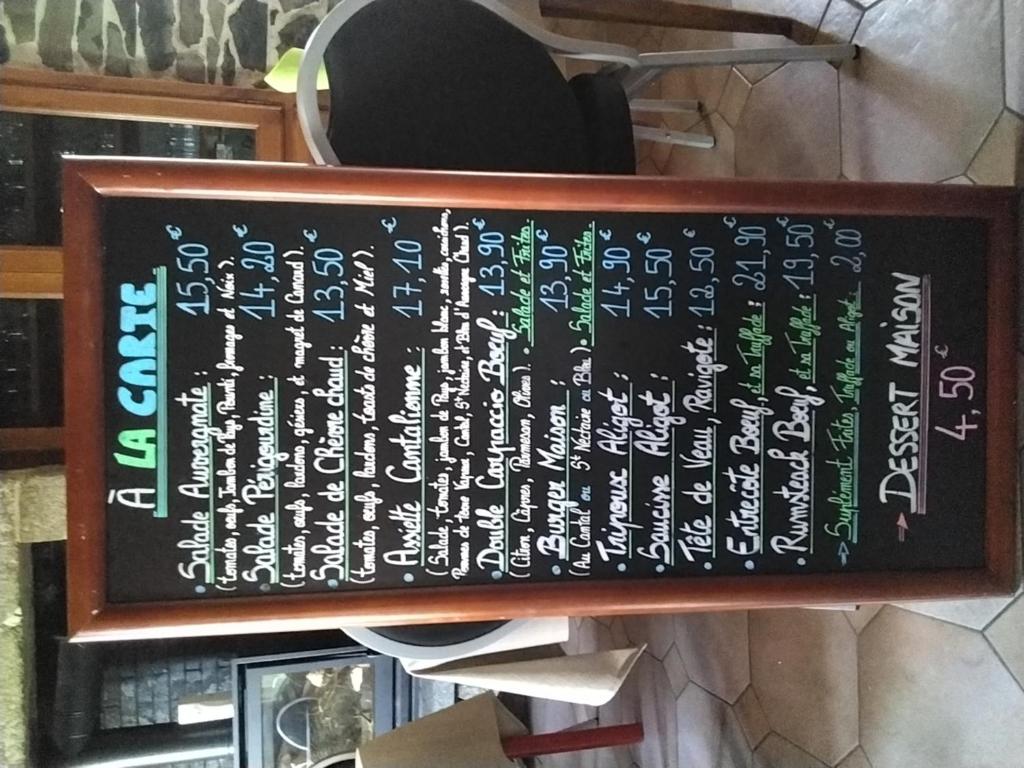 À LA CARTE
• Salade Auvergnate : 15,50 €
(tomates, oeufs, Jambon de Pays, Pounti, fromages et Noix).
• Salade Périgourdine : 14,20 €
(tomates, oeufs, lardons, gésiers, et magret de Canard).
• Salade de Chèvre chaud : 13,50 €
(tomates, oeufs, lardons, toasts de chèvre et Miel).
• Assiette Cantalienne : 17,10 €
(Salade, Tomates, jambon de Pays, jambon blanc, cornichons,
Pommes de terre Vapeur, Cantal, St Nectaire, et Bleu d'Auvergne Chaud).
• Double Carpaccio Boeuf : 13,90 €
(Citron, Câpres, Parmesan, Olives) • Salade et Frites.
• Burger Maison : 13,90 €
(Au Cantal ou St Nectaire ou Bleu) • Salade et Frites.
• Tripoux Aligot : 14,90 €
• Saucisse Aligot : 15,50 €
• Tête de Veau, Ravigote : 12,50 €
• Entrecôte Boeuf, et sa Truffade : 21,90 €
• Rumsteack Boeuf, et sa Truffade : 19,50 €
→ Suplément Frites, Truffade ou Aligot : 2,00 €
→ DESSERT MAISON
4,50 €